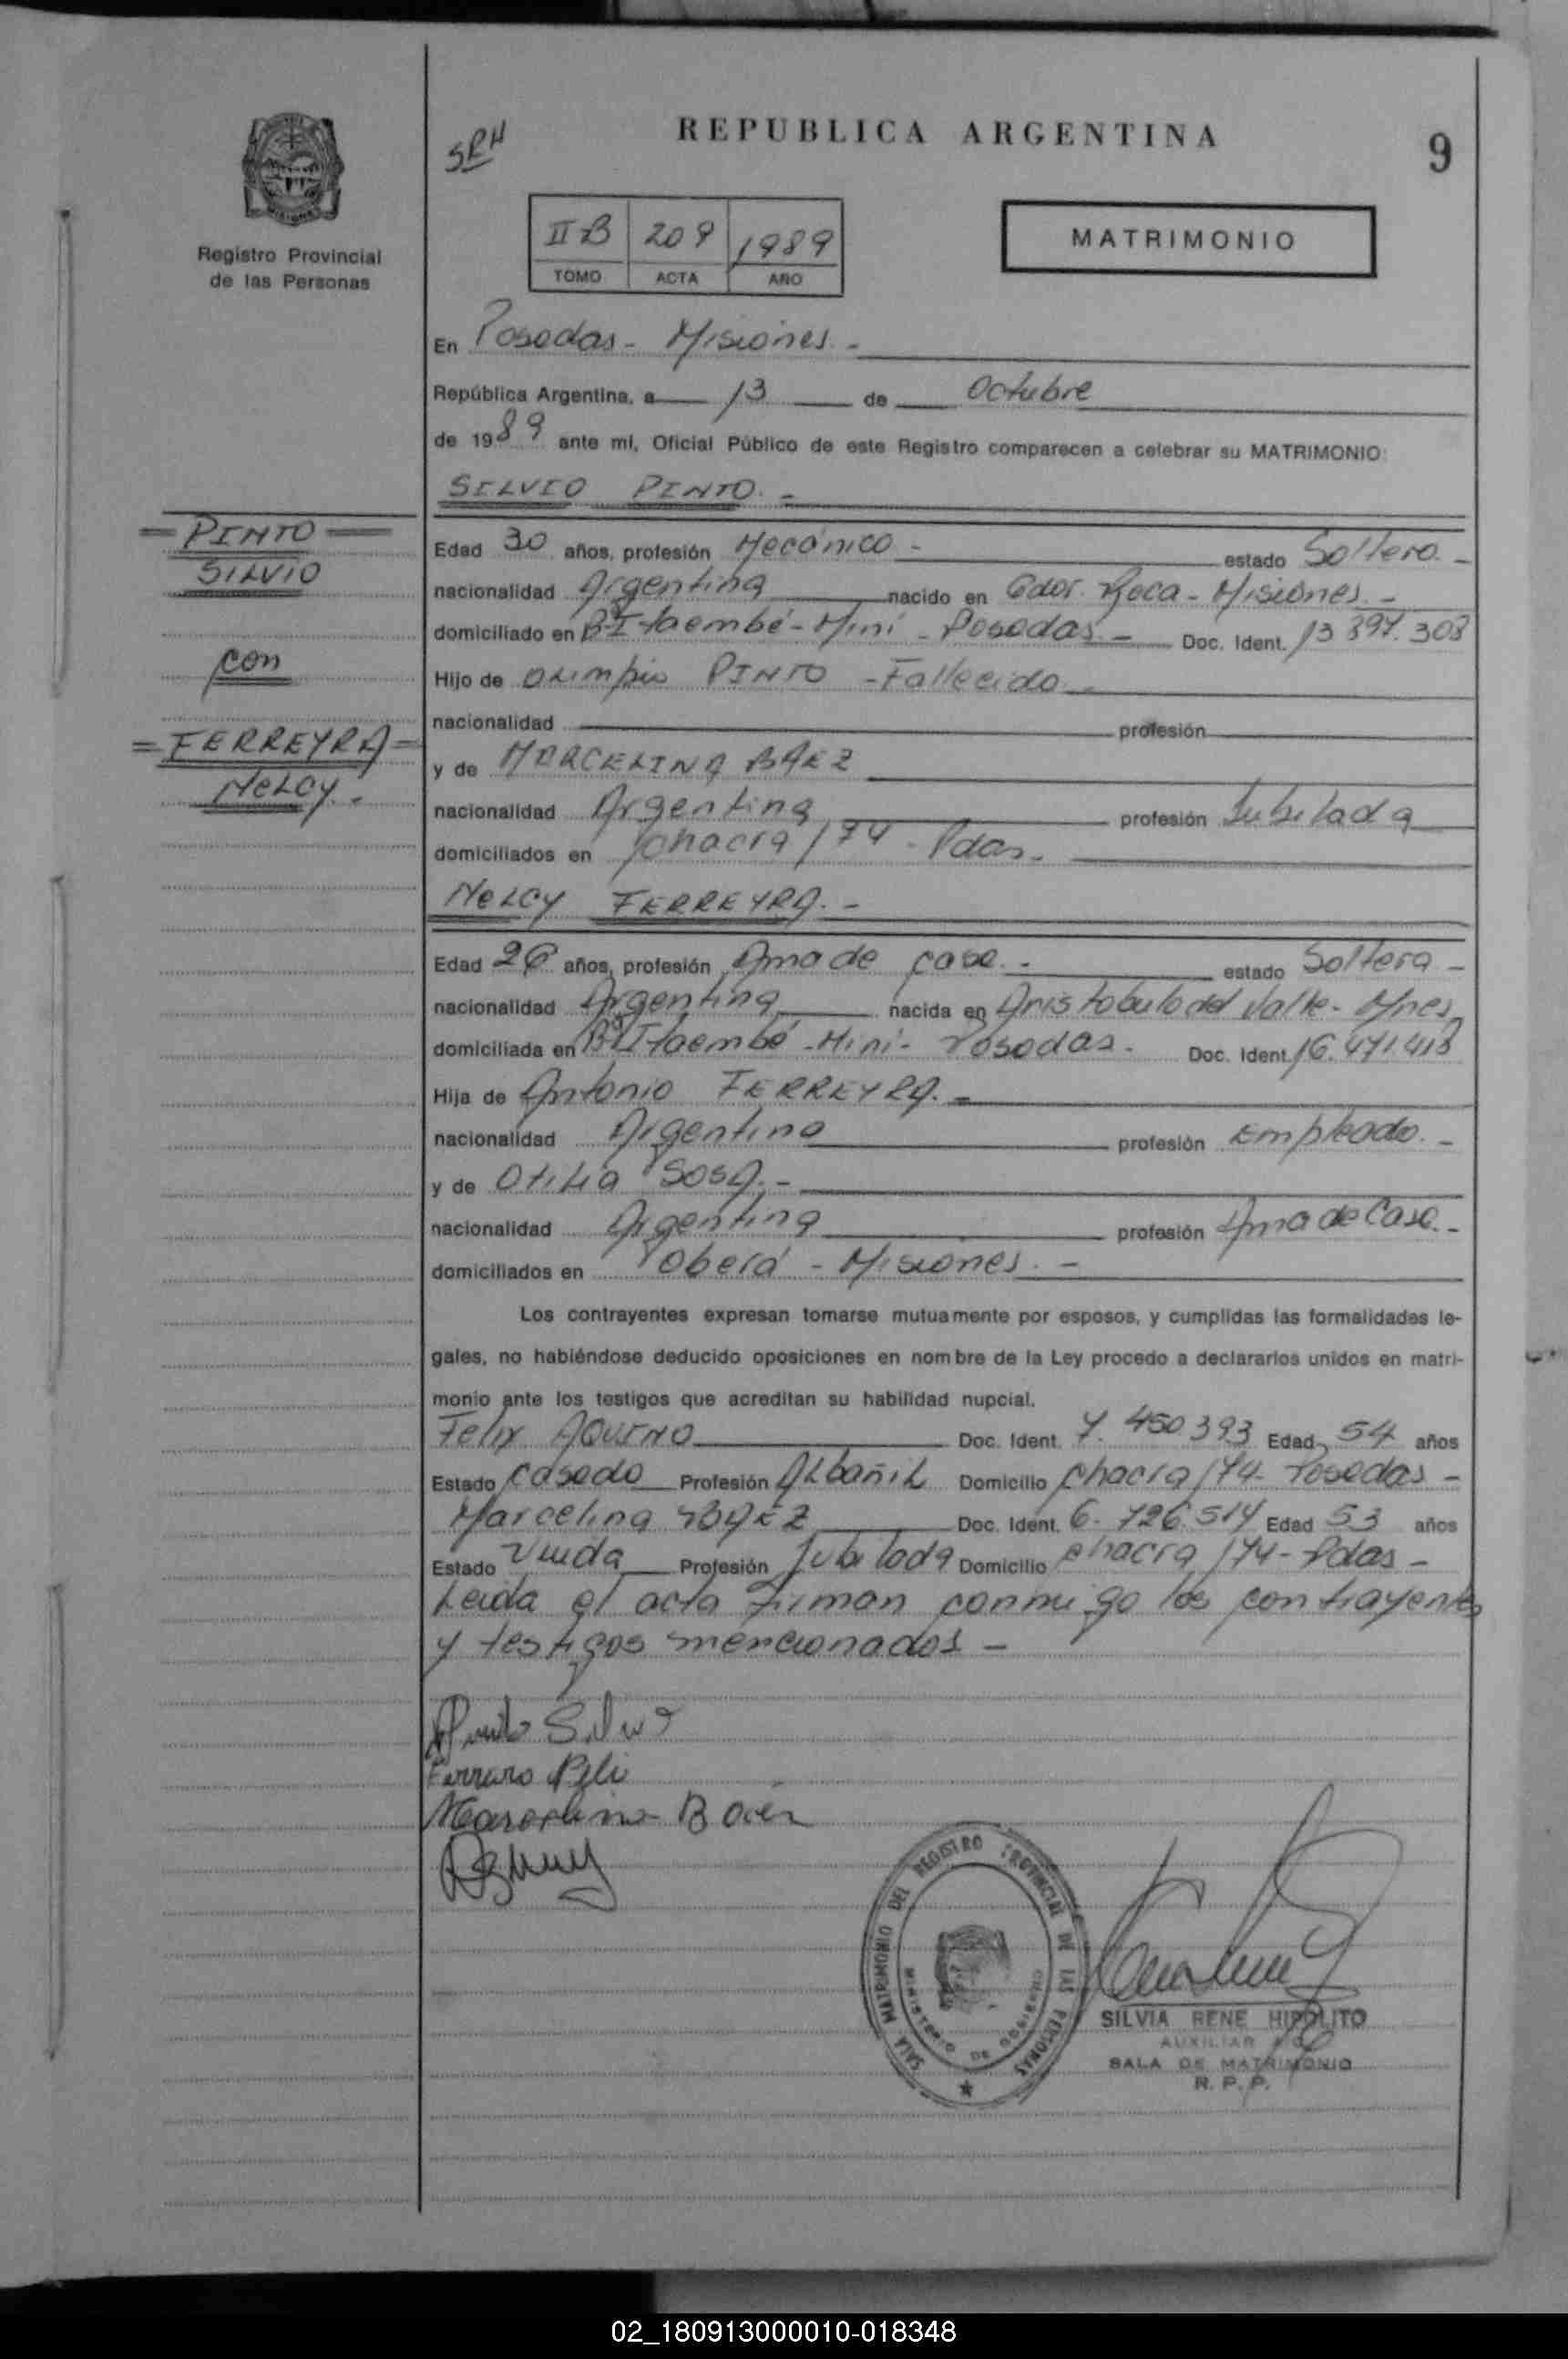 REPUBLICA ARGENTINA
9
SRH
Registro Provincial
de las Personas
II B 209 1989
TOMO ACTA AÑO
MATRIMONIO
En Posadas - Misiones -
República Argentina, a 13 de Octubre
de 1989 ante mí, Oficial Público de este Registro comparecen a celebrar su MATRIMONIO:
SILVIO PINTO. -
= PINTO =
SILVIO
con
= FERREYRA =
NELCY. -
Edad 30 años, profesión Mecánico - estado Soltero. -
nacionalidad Argentina nacido en Gdor. Roca - Misiones. -
domiciliado en Bº Itaembé - Miní - Posadas. - Doc. Ident. 13 897. 308
Hijo de OLimpio PINTO - Fallecido -
nacionalidad profesión
y de MARCELINA BAEZ
nacionalidad Argentina profesión Jubilada
domiciliados en chacra 174 - Pdas. -
NELCY FERREYRA. -
Edad 26 años, profesión Ama de casa. - estado Soltera -
nacionalidad Argentina nacida en Aristobulo del Valle - Mnes
domiciliada en Bº Itaembé - Mini - Posadas. Doc. Ident. 16. 471.418
Hija de Antonio FERREYRA. -
nacionalidad Argentina profesión Empleado. -
y de Otilia SOSA. -
nacionalidad Argentina profesión Ama de Casa. -
domiciliados en Oberá - Misiones. -
Los contrayentes expresan tomarse mutuamente por esposos, y cumplidas las formalidades le-
gales, no habiéndose deducido oposiciones en nombre de la Ley procedo a declararlos unidos en matri-
monio ante los testigos que acreditan su habilidad nupcial.
Felix AQUINO Doc. Ident. 7. 450 393 Edad 54 años
Estado Casado Profesión ALbañiL Domicilio chacra 174 - Posadas -
Marcelina BAEZ Doc. Ident. 6. 726.514 Edad 53 años
Estado Viuda Profesión Jubilada Domicilio chacra 174 - Pdas -
Leida el acta firman conmigo los contrayentes
y testigos mencionados -
Pinto Silvio
Marcelina Baez
SALA MATRIMONIO DEL REGISTRO PROVINCIAL DE LAS PERSONAS
MINISTERIO DE GOBIERNO
SILVIA RENE HIPOLITO
AUXILIAR
SALA DE MATRIMONIO
R. P. P.
02_180913000010-018348